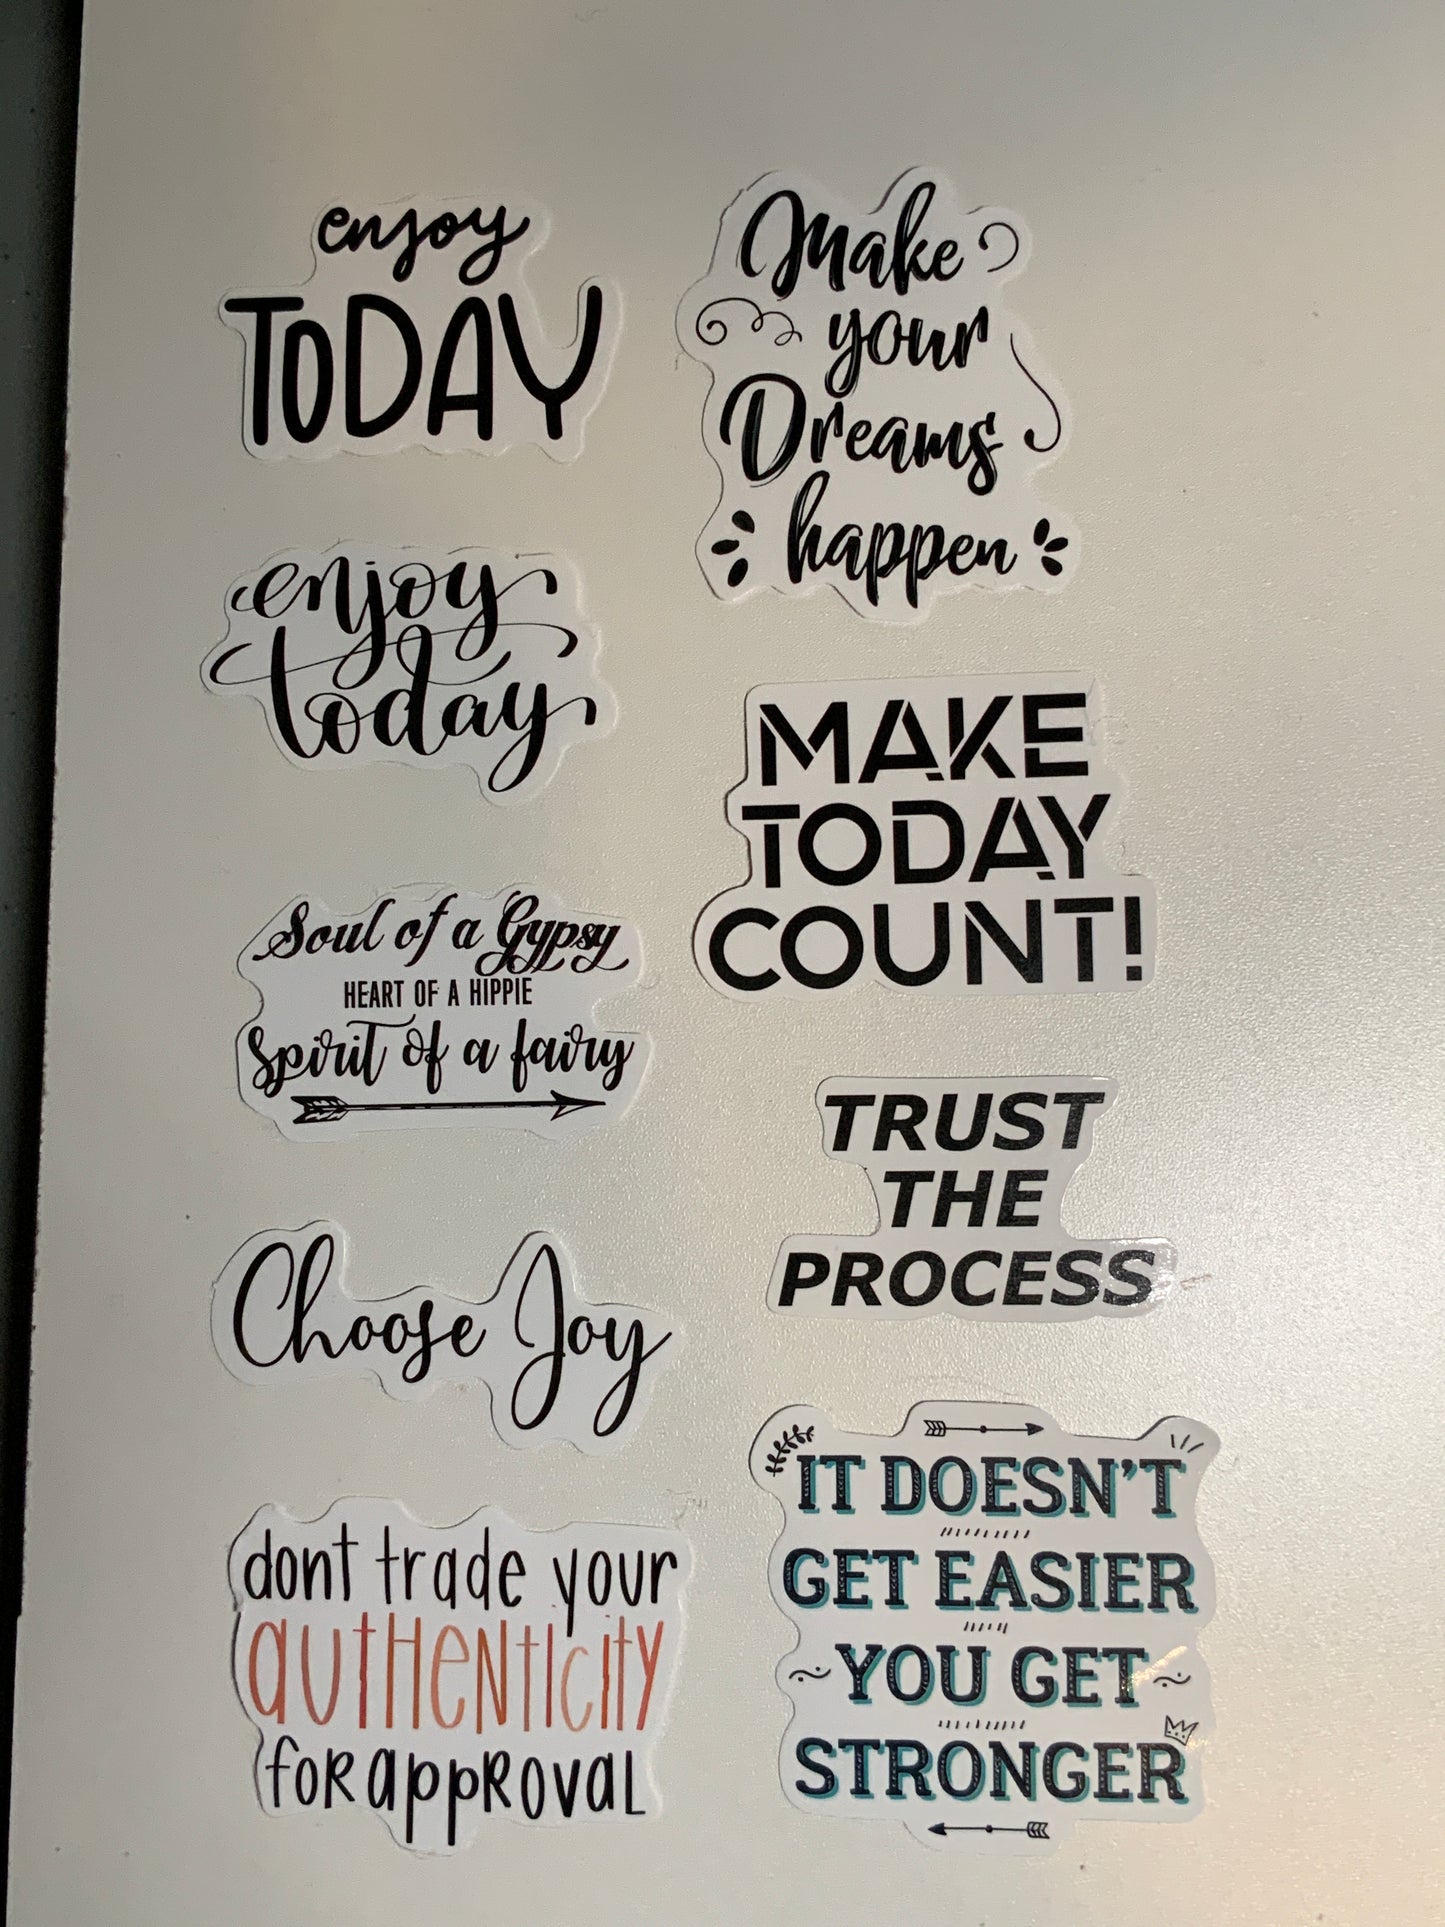 enjoy
TODAY
enjoy
today
Soul of a Gypsy
HEART OF A HIPPIE
Spirit of a fairy
Choose Joy
dont trade your
authenticity
for approval
Make
your
Dreams
happen
MAKE
TODAY
COUNT!
TRUST
THE
PROCESS
IT DOESN'T
GET EASIER
YOU GET
STRONGER